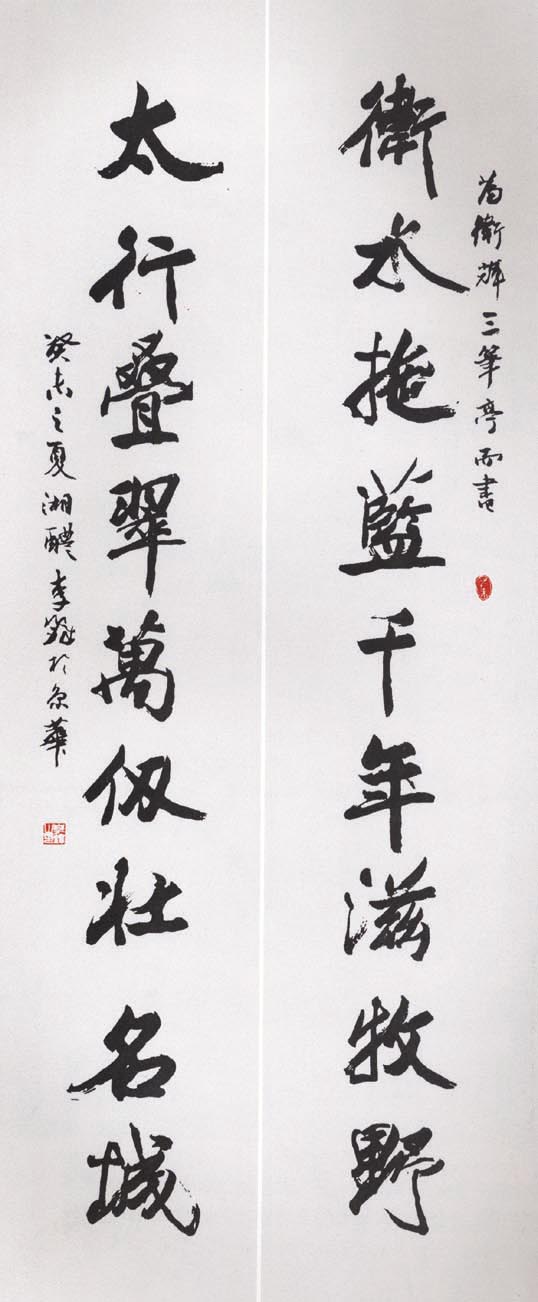 為衛輝三筆亭而書
衛水拖藍千年滋牧野
太行疊翠萬仭壯名城
癸未之夏湘醴李鐸於京華